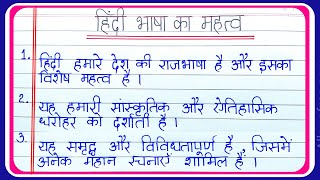 हिंदी भाषा का महत्व
1. हिंदी हमारे देश की राजभाषा है और इसका
विशेष महत्व है ।
2. यह हमारी सांस्कृतिक और ऐतिहासिक
धरोहर को दर्शाती है ।
3. यह समृद्ध और विविधतापूर्ण है, जिसमें
अनेक महान रचनाएँ शामिल हैं ।